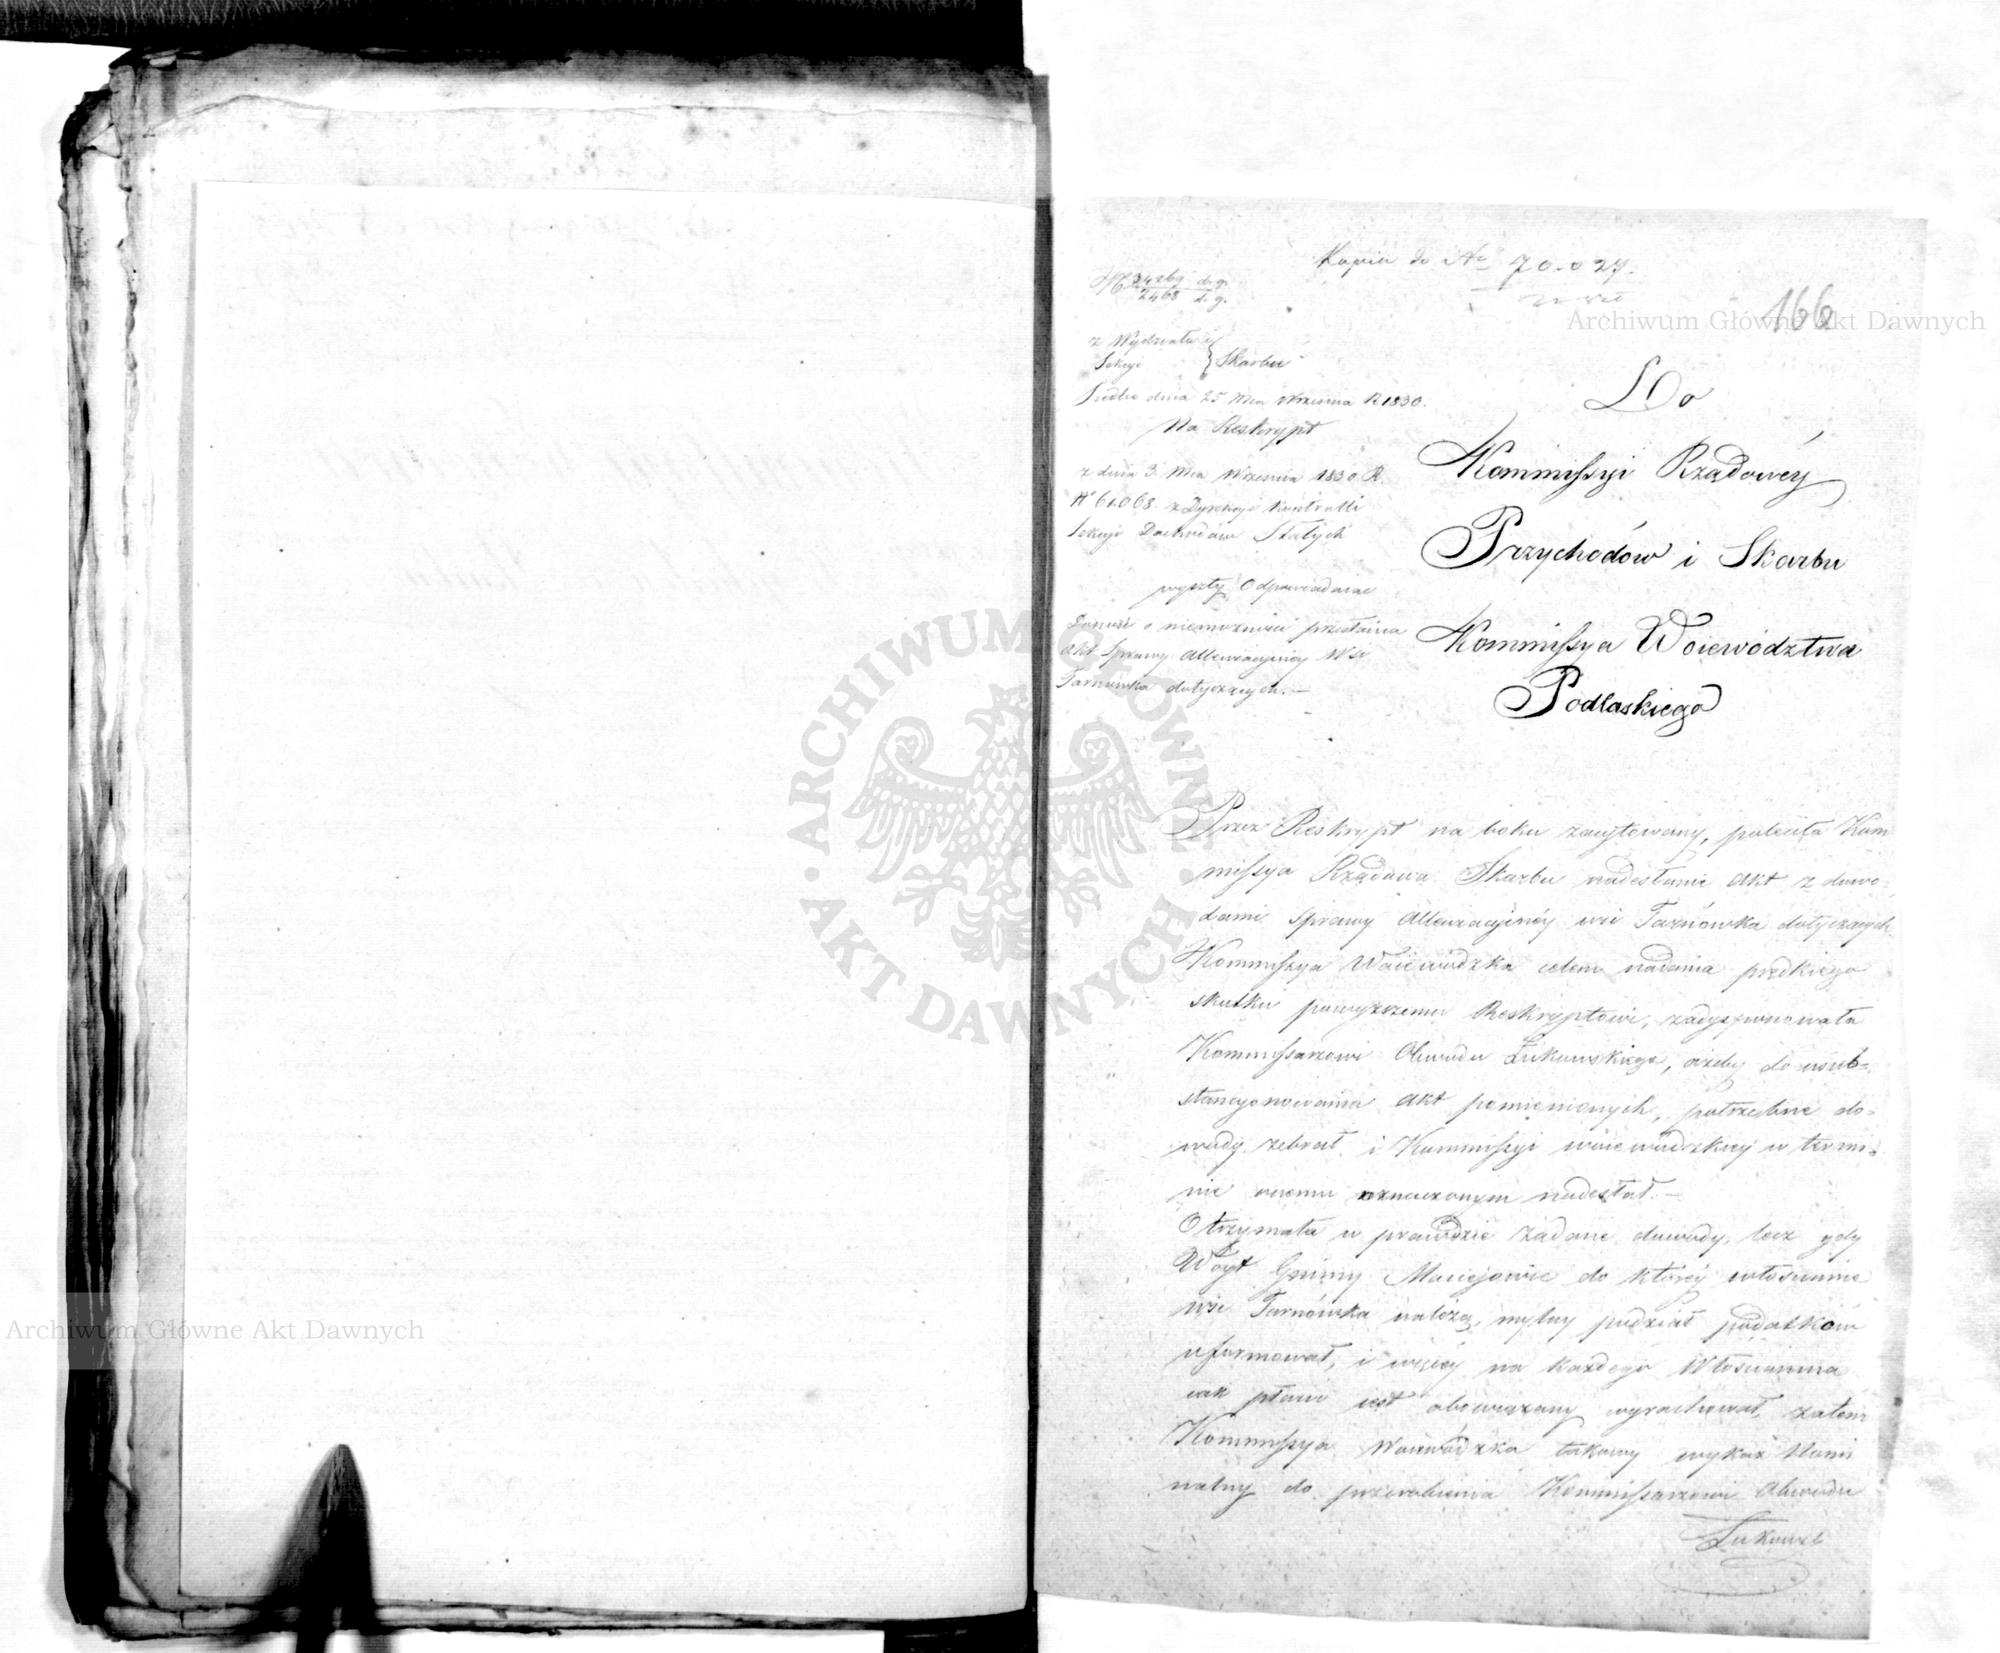 Kopia do No 70.027.
166
No 34269 d. g.
2468 d. g.
z Wydziału i
Sekcyi } Skarbu
Siedlce dnia 25 Mca Września R 1830.
Na Reskrypt
z dnia 3. Mca Września 1830 R.
No 61.068. z Dyrekcyi Kontrolli
Sekcyi Dochodów Stałych
wyszły Odpowiadaiąc
Donosi o niemożności przesłania
Akt Sprawy Allewiacyjney Wsi
Tarnówka dotyczących.—
Do
Kommissyi Rządowéy
Przychodów i Skarbu
Kommissya Woiewództwa
Podlaskiego
Przez Reskrypt na boku zacytowany, poleciła Kom
missya Rządowa Skarbu nadesłanie Akt z dowo-
dami Sprawy Allewiacyjnéy wsi Tarnówka dotyczących
Kommissya Woiewódzka celem nadania prędkiego
skutku powyższemu Reskryptowi, zadysponowała
Kommissarzowi Obwodu Łukowskiego, ażeby do usub-
stancyonowania Akt pomienionych, potrzebne do-
wody zebrał i Kommissyi woiewódzkiey w termi-
nie onemu oznaczonym nadesłał.—
Otrzymała w prawdzie żądane dowody, lecz gdy
Wóyt Gminy Maciejowice do któréy włościanie
wsi Tarnówka należą, mylny podział podatków
uformował, i więcéy na każdego Włościanina
iak płacić iest obowiązany wyrachował, zatem
Kommissya Woiewódzka takowy wykaz Nomi
nalny do przerobienia Kommissarzowi Obwodu
Łukows
Archiwum Główne Akt Dawnych
Archiwum Główne Akt Dawnych
ARCHIWUM GŁÓWNE AKT DAWNYCH